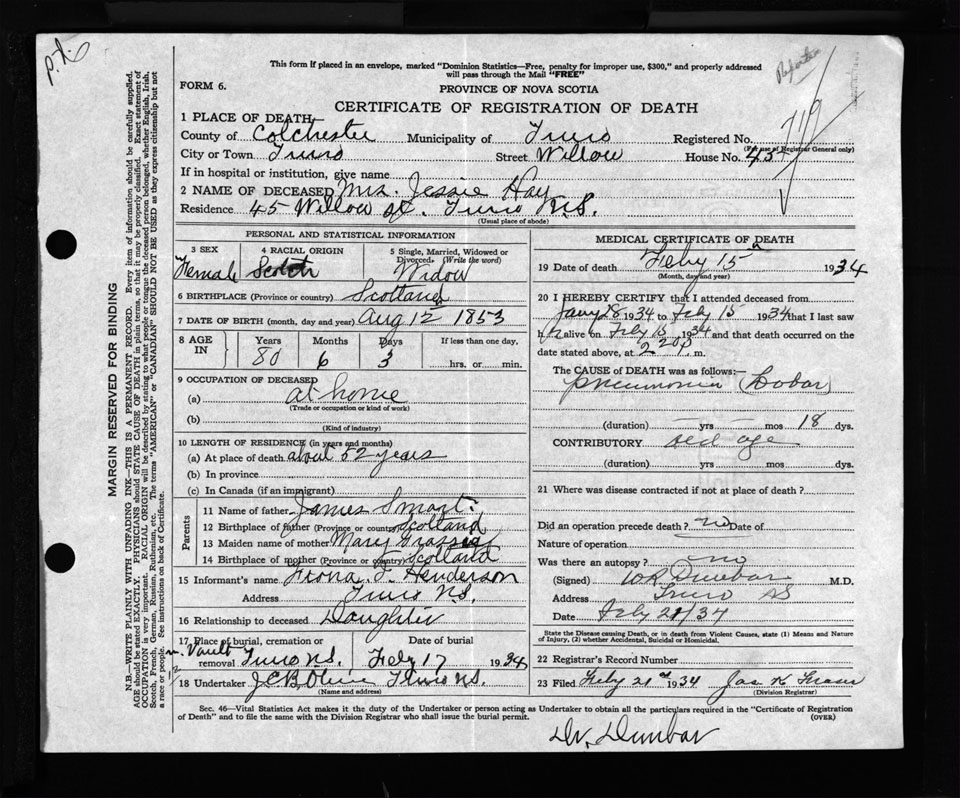 P.L.
This form if placed in an envelope, marked "Dominion Statistics—Free, penalty for improper use, $300," and properly addressed
will pass through the Mail "FREE"
FORM 6.
PROVINCE OF NOVA SCOTIA
CERTIFICATE OF REGISTRATION OF DEATH
1 PLACE OF DEATH
County of Colchester Municipality of Truro Registered No. 719
(For use of Registrar General only)
City or Town Truro Street Willow House No. 45
If in hospital or institution, give name
2 NAME OF DECEASED Mrs. Jessie Hay
Residence 45 Willow St. Truro N.S.
(Usual place of abode)
PERSONAL AND STATISTICAL INFORMATION
3 SEX 4 RACIAL ORIGIN 5 Single, Married, Widowed or Divorced. (Write the word)
Female Scotch Widow
6 BIRTHPLACE (Province or country) Scotland
7 DATE OF BIRTH (month, day and year) Aug 12 1853
8 AGE IN Years Months Days If less than one day,
80 6 3 hrs. or min.
9 OCCUPATION OF DECEASED
(a) at home
(Trade or occupation or kind of work)
(b)
(Kind of industry)
10 LENGTH OF RESIDENCE (in years and months)
(a) At place of death about 52 years
(b) In province
(c) In Canada (if an immigrant)
Parents
11 Name of father James Smart
12 Birthplace of father (Province or country) Scotland
13 Maiden name of mother Mary
14 Birthplace of mother (Province or country) Scotland
15 Informant's name Fiona F. Henderson
Address Truro N.S.
16 Relationship to deceased Daughter
17 Place of burial, cremation or removal Date of burial
in Vault Truro N.S. Feby 17 1934
18 Undertaker Truro N.S.
(Name and address)
MEDICAL CERTIFICATE OF DEATH
19 Date of death Feby 15 1934
(Month, day and year)
20 I HEREBY CERTIFY that I attended deceased from
Jany 28 1934 to Feby 15 1934 that I last saw
h alive on Feby 15 1934 and that death occurred on the
date stated above, at 2 20 p. m.
The CAUSE of DEATH was as follows:—
pneumonia (Lobar)
(duration) yrs mos 18 dys.
CONTRIBUTORY old age
(duration) yrs mos dys.
21 Where was disease contracted if not at place of death?
Did an operation precede death? no Date of
Nature of operation
Was there an autopsy? no
(Signed) W R Dunbar M.D.
Address Truro NS
Date Feby 21/34
State the Disease causing Death, or in death from Violent Causes, state (1) Means and Nature of Injury, (2) whether Accidental, Suicidal or Homicidal.
22 Registrar's Record Number
23 Filed Feby 21 1934 Jas K Fraser
(Division Registrar)
Sec. 46—Vital Statistics Act makes it the duty of the Undertaker or person acting as Undertaker to obtain all the particulars required in the "Certificate of Registration
of Death" and to file the same with the Division Registrar who shall issue the burial permit. (OVER)
Dr. Dunbar
MARGIN RESERVED FOR BINDING
N.B.—WRITE PLAINLY WITH UNFADING INK—THIS IS A PERMANENT RECORD. Every item of information should be carefully supplied.
AGE should be stated EXACTLY. PHYSICIANS should STATE CAUSE OF DEATH in plain terms, so that it may be properly classified. Exact statement of
OCCUPATION is very important. RACIAL ORIGIN will be described by stating to what people or tongue the deceased person belonged, whether English, Irish,
Scotch, French, German, Russian, Ruthenian, etc. The terms "AMERICAN" or "CANADIAN" SHOULD NOT BE USED as they express citizenship but not
a race or people. See instructions on back of Certificate.